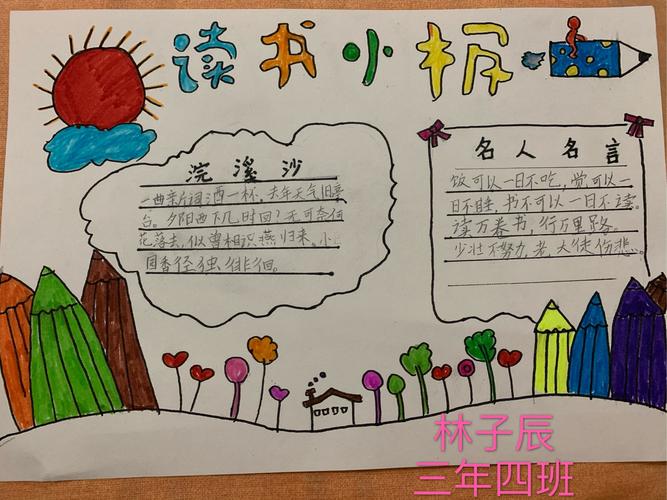 读书小报
浣溪沙
一曲新词酒一杯。去年天气旧亭
台。夕阳西下几时回?无可奈何
花落去,似曾相识燕归来。小
园香径独徘徊。
名人名言
饭可以一日不吃,觉可以一
日不睡,书不可以一日不读。
读万卷书,行万里路。
少壮不努力,老大徒伤悲。
林子辰
三年四班